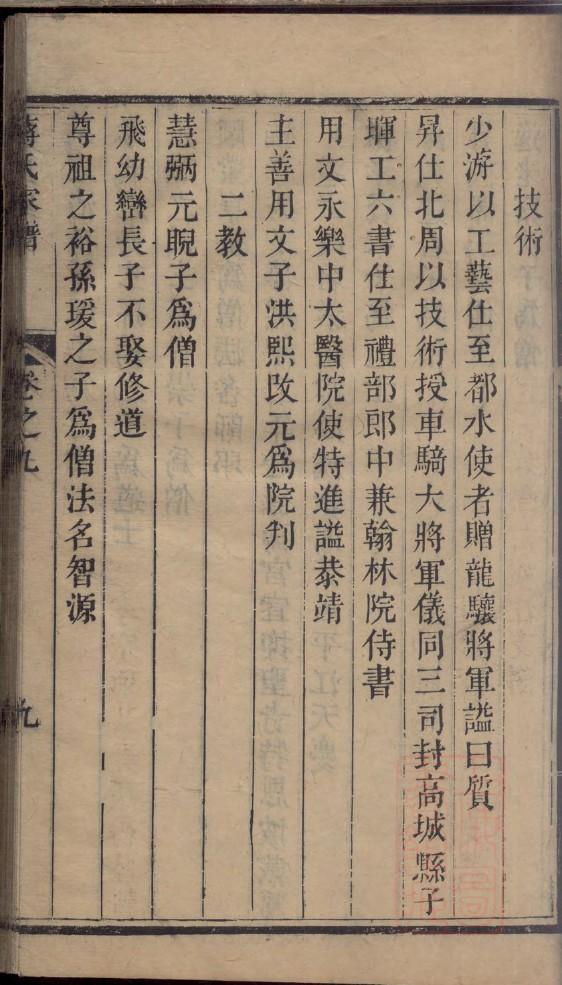 技術
少游以工藝仕至都水使者贈龍驤將軍謚曰質
昇仕北周以技術授車騎大將軍儀同三司封高城縣子
暉工六書仕至禮部郎中兼翰林院侍書
用文永樂中太醫院使特進謚恭靖
主善用文子洪熙改元爲院判
二教
慧弻元睨子爲僧
飛幼巒長子不娶修道
尊祖之裕孫瑗之子爲僧法名智源
蔣氏家譜 卷之九 九